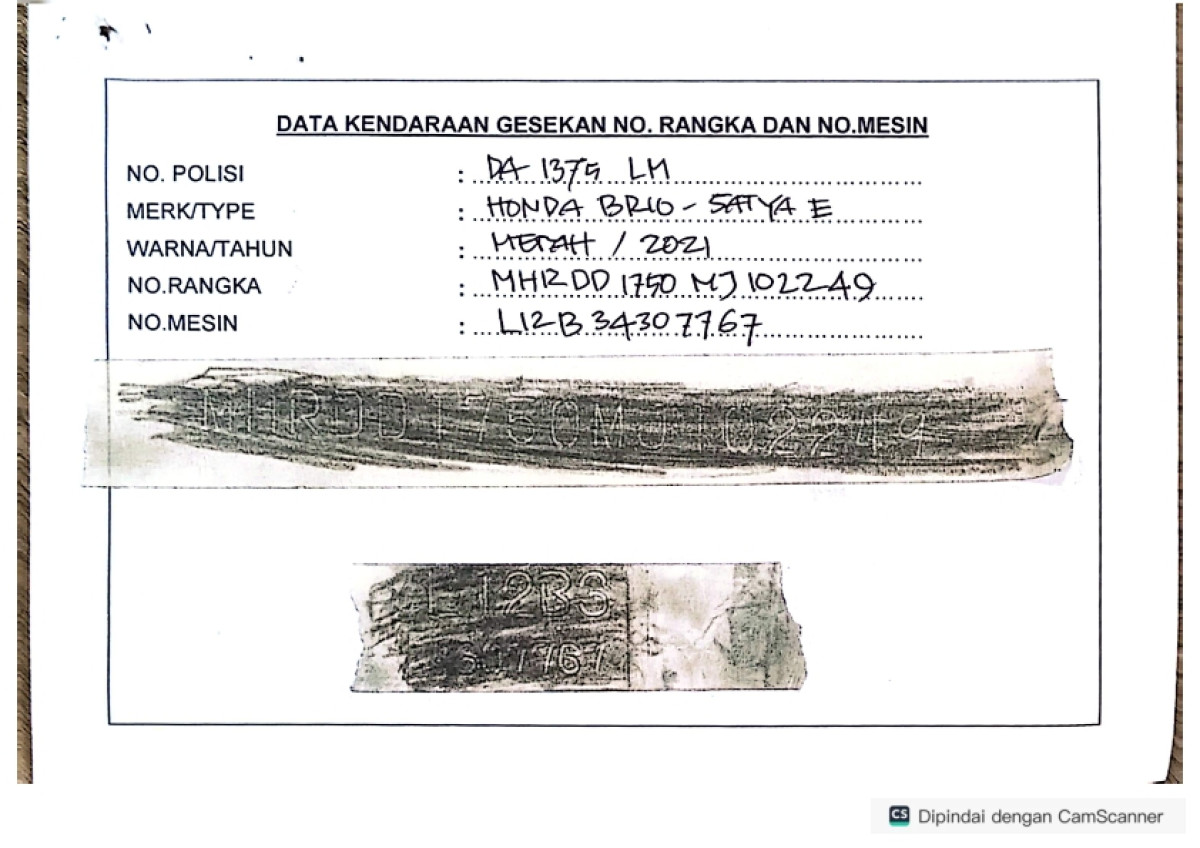 DATA KENDARAAN GESEKAN NO. RANGKA DAN NO.MESIN
NO. POLISI : DA 1375 LM
MERK/TYPE : HONDA BRIO - SATYA E
WARNA/TAHUN : MERAH / 2021
NO.RANGKA : MHRDD 1750 MJ 102249
NO.MESIN : L12B34307767
MHRDD1750MJ102249
L12B3
307767
CS Dipindai dengan CamScanner